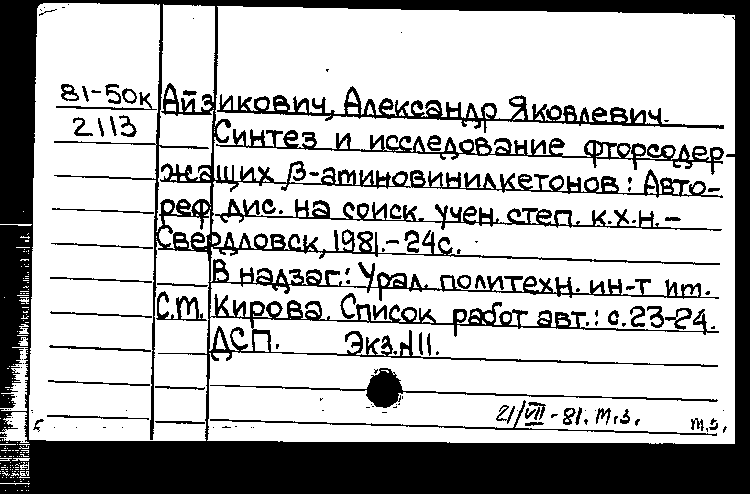 81-50к Айзикович, Александр Яковлевич.
2113 Синтез и исследование фторсодер-
жащих β-аминовинилкетонов: Авто-
реф. дис. на соиск. учен. степ. к.х.н.-
Свердловск, 1981.-24с.
В надзаг.: Урал. политехн. ин-т им.
С.М. Кирова. Список работ авт.: с.23-24.
ДСП. Экз.N11.
21/VII-81. м.з. м.з.